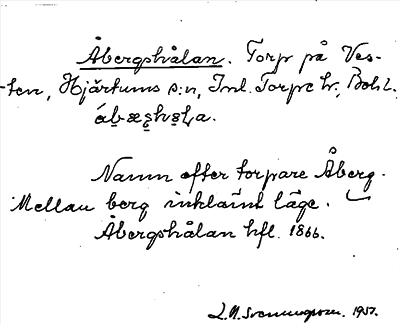 Åbergshålan. Torp på Ves-
-ten, Hjärtums s:n, Inl. Torpe hd, Boh l.
Namn efter torpare Åberg.
Mellan berg inklämt läge.
Åbergshålan hfl. 1866.
1957.